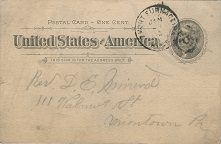 POSTAL CARD - ONE CENT.
United States of America
THIS SIDE IS FOR THE ADDRESS ONLY.
JAN
Rev D. E. Minerd
111 Walnut St
Uniontown
Pa